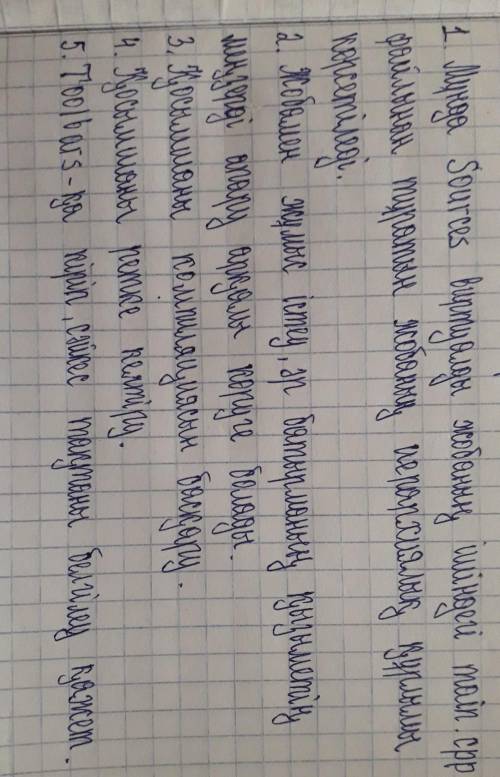 1. Мұнда Sources виртуалды жобаның ішіндегі main.cpp
файлынан тұратын жобаның иерархиялық құрлымы
көрсетіледі.
2. Жобамен жұмыс істеу, әр батырманың қызыметін
мәзірді ашу арқылы көруге болады.
3. Қосымшаны компиляциясын басқару.
4. Қосымшаны ретке келтіру.
5. Toolbars-қа кіріп, сәйкес тақтаны белгілеу қажет.